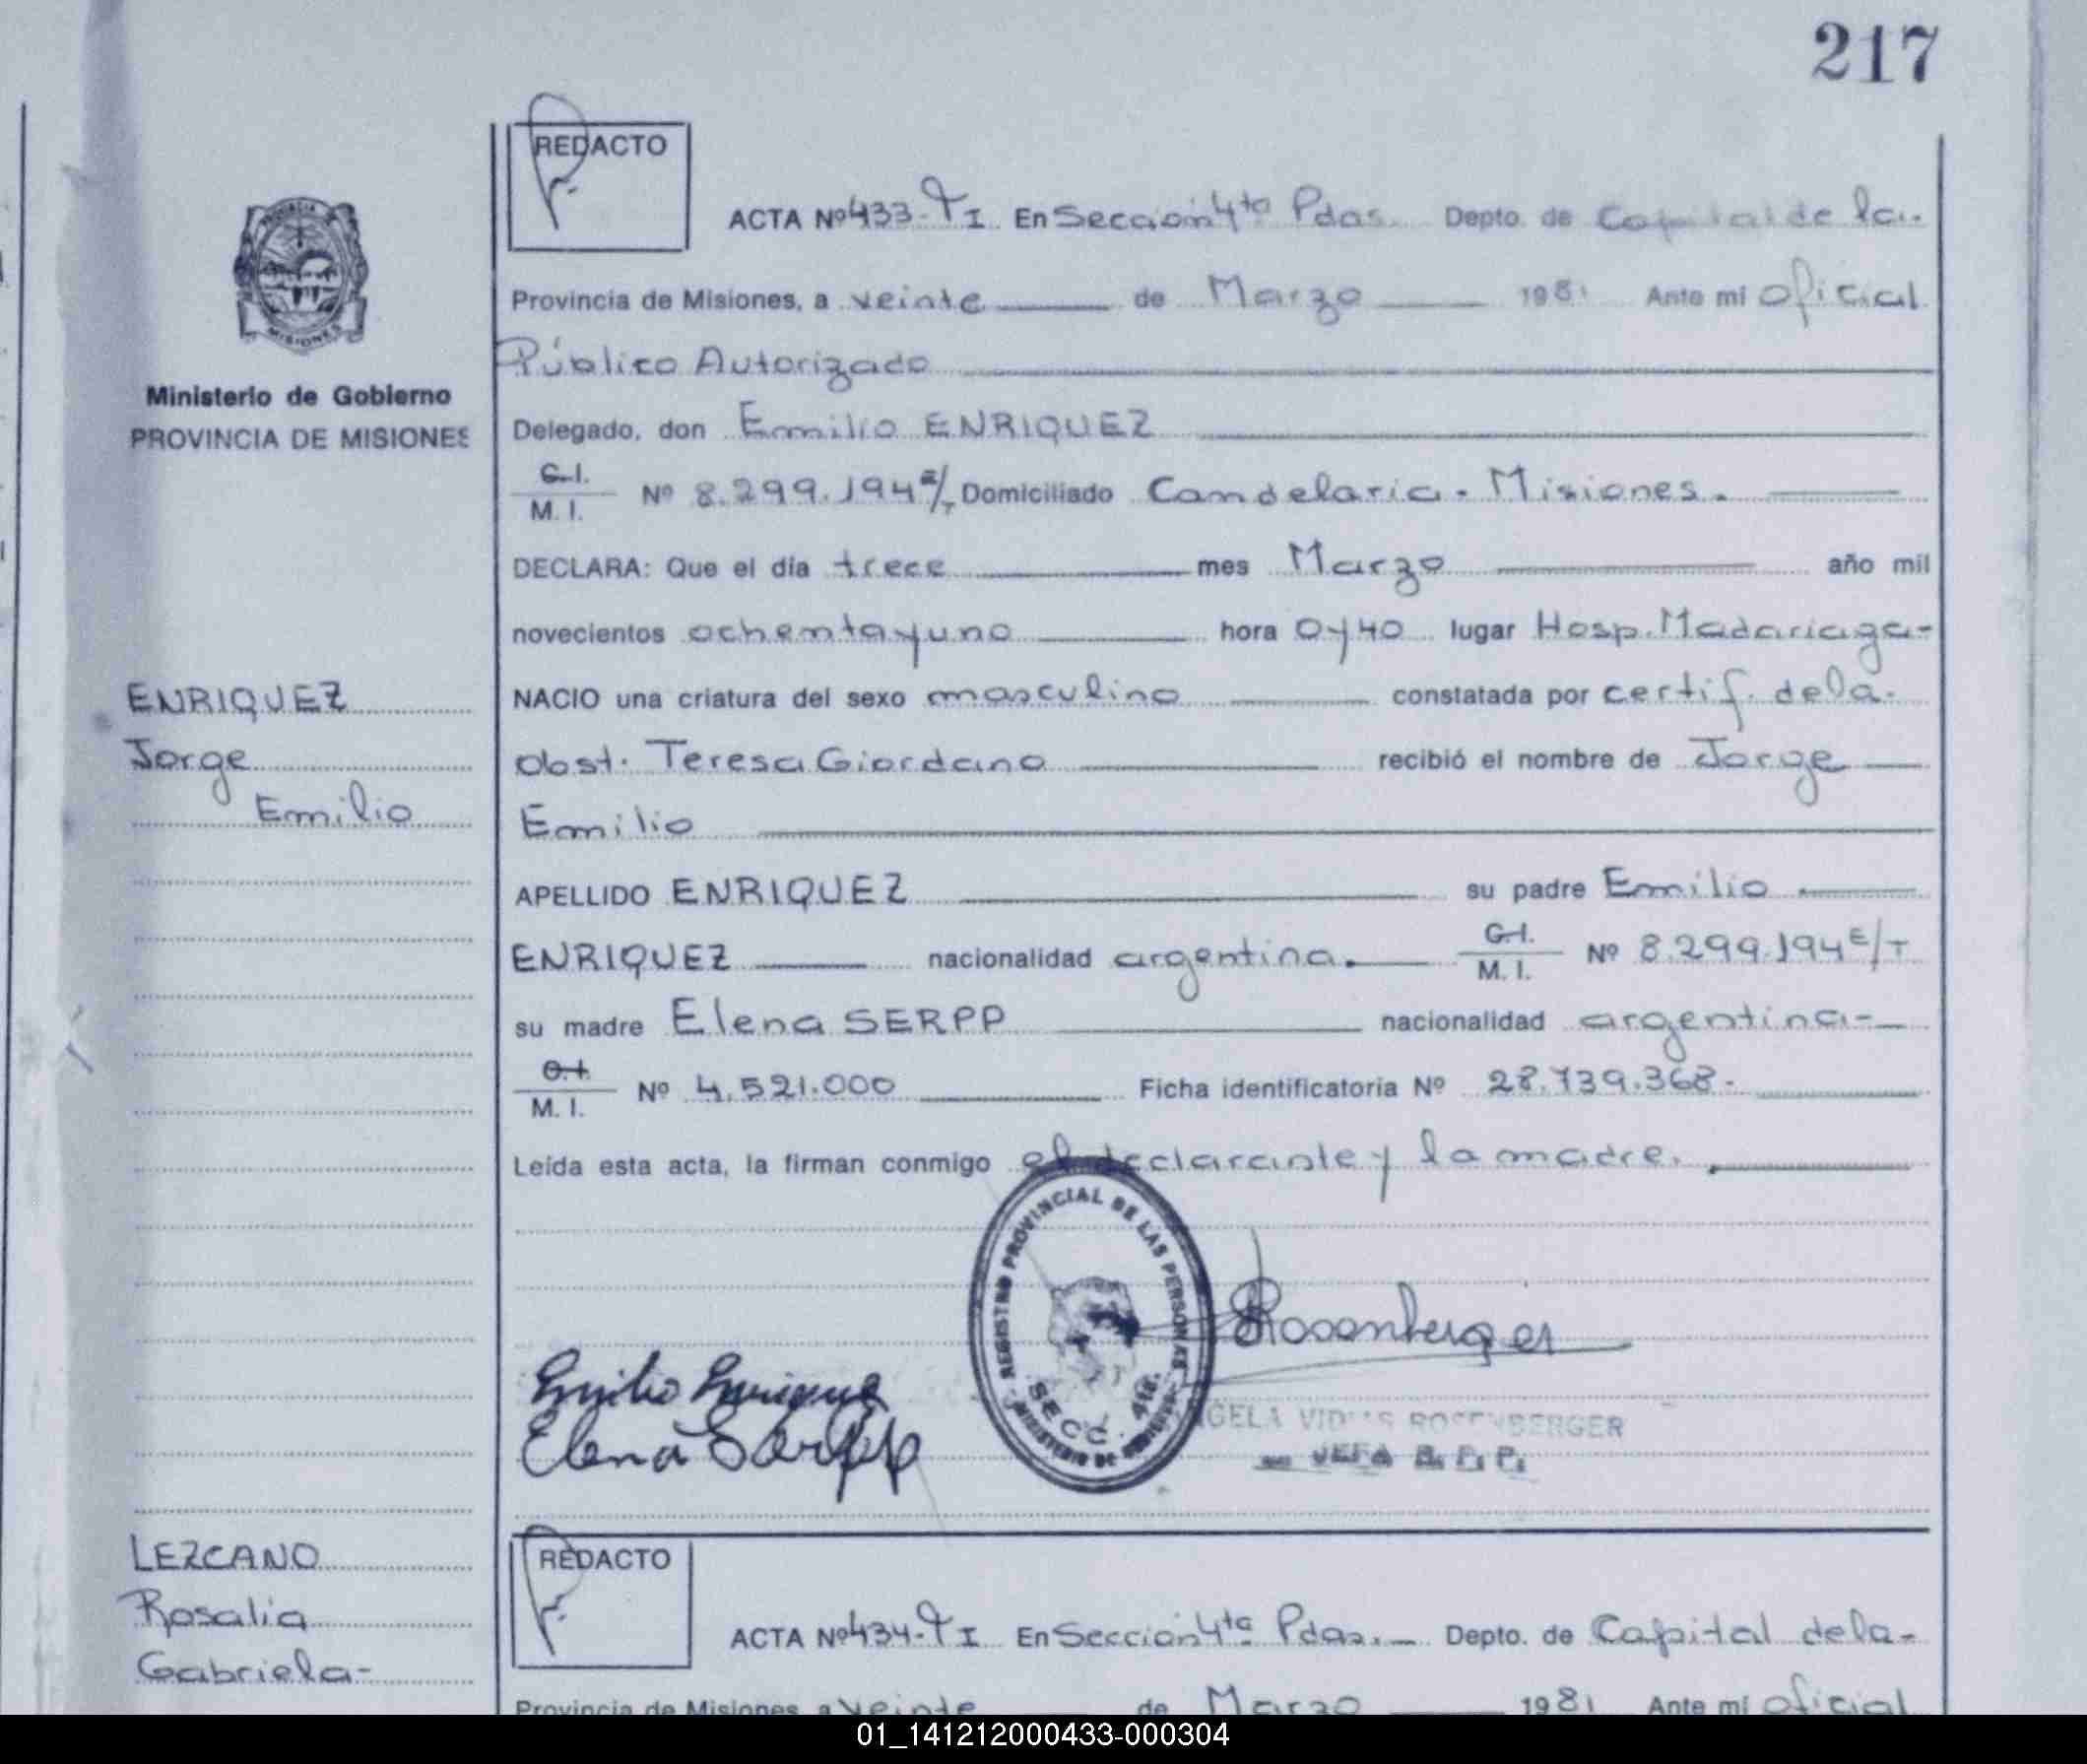 217
REDACTO
ACTA Nº 433-TI. En Sección 4ta Pdas. Depto. de Capital de la.
Provincia de Misiones, a veinte de Marzo 1981 Ante mi Oficial
Público Autorizado
Ministerio de Gobierno
PROVINCIA DE MISIONES
Delegado, don Emilio ENRIQUEZ
C.I.
M. I. Nº 8.299.194 E/T Domiciliado Candelaria. Misiones.
DECLARA: Que el día trece mes Marzo año mil
novecientos ochentayuno hora 0y40 lugar Hosp. Madariaga-
ENRIQUEZ
NACIO una criatura del sexo masculino constatada por certif. dela.
Jorge
obst. Teresa Giordano recibió el nombre de Jorge
Emilio
Emilio
APELLIDO ENRIQUEZ su padre Emilio
ENRIQUEZ nacionalidad argentina. C.I.
M. I. Nº 8.299.194 E/T
su madre Elena SERPP nacionalidad argentina-
C.I.
M. I. Nº 4.521.000 Ficha identificatoria Nº 28.739.368.
Leída esta acta, la firman conmigo el declarante y la madre.
REGISTRO PROVINCIAL DE LAS PERSONAS
SECC. 4ta.
MINISTERIO DE GOBIERNO
Rosenberger
Emilio Enrique
Elena Serpp
ROSENBERGER
JEFA R. P. P.
LEZCANO
Rosalia
Gabriela-
REDACTO
ACTA Nº 434-TI En Sección 4ta Pdas. Depto. de Capital dela-
Provincia de Misiones a veinte de Marzo 1981 Ante mi oficial
01_141212000433-000304